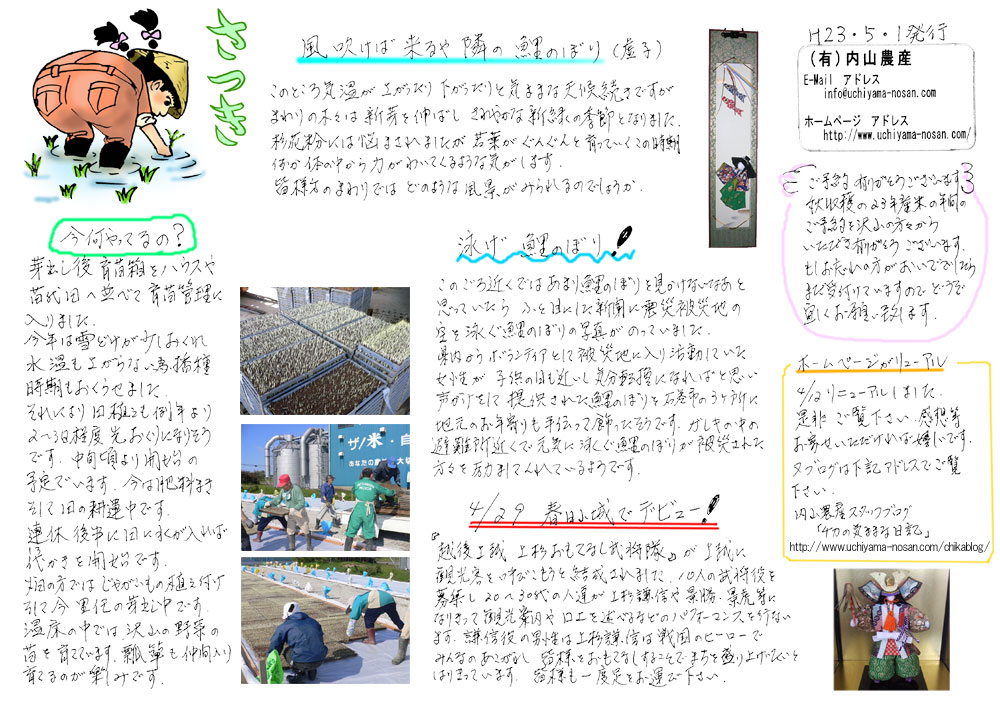 さつき
風吹けば来るや隣の鯉のぼり(虚子)
このところ気温が上がったり下がったりと気ままな天候続きですが
まわりの木々は新芽を伸ばしさわやかな新緑の季節となりました。
杉花粉には悩まされましたが若葉がぐんぐんと育っていくこの時期
何か体の中から力がわいてくるような気がします。
皆様方のまわりではどのような風景がみられるのでしょうか。
H23・5・1発行
(有)内山農産
E-Mail アドレス
info@uchiyama-nosan.com
ホームページ アドレス
http://www.uchiyama-nosan.com/
ご予約有りがとうございます
秋収穫の23年産米の年間の
ご予約を沢山の方々から
いただき有りがとうございます。
もしお忘れの方がおいででしたら
まだ受付けていますのでどうぞ
宜しくお願い致します。
今何やってるの?
芽出し後育苗箱をハウスや
苗代田へ並べて育苗管理に
入りました。
今年は雪どけが少しおくれ
水温も上がらない為播種
時期もおくらせました。
それにより田植えも例年より
2〜3日程度先おくりになりそう
です。中旬頃より開始の
予定でいます。今は肥料まき
そして田の耕運中です。
連休後半に田に水が入れば
代かきを開始です。
畑の方ではじゃがいもの植え付け
そして今里いもの芽出し中です。
温床の中では、沢山の野菜の
苗を育てています。瓢箪も仲間入り
育てるのが楽しみです。
ザノ米・自
あなたの食卓 大切
泳げ鯉のぼり!
このごろ近くではあまり鯉のぼりを見かけないなあと
思っていたらふと目にした新聞に震災被災地の
空を泳ぐ鯉のぼりの写真がのっていました。
県内からボランティアとして被災地に入り活動していた
女性が子供の日も近いし気分転換になればと思い
声がけをして提供された鯉のぼりを石巻市の3ヶ所に
地元のお年寄りも手伝って飾ったそうです。ガレキの中の
避難所近くで元気に泳ぐ鯉のぼりが被災された
方々を励ましてくれているようです。
4/29 春日山城でデビュー!
『越後上越 上杉おもてなし武将隊』が上越に
観光客を呼びこもうと結成されました。10人の武将役を
募集し20〜30代の人達が上杉謙信や景勝、景虎等に
なりきって観光案内や口上を述べるなどのパフォーマンスを行ない
ます。謙信役の男性は上杉謙信は戦国のヒーローで
みんなのあこがれ 皆様をおもてなしすることでまちを盛り上げたいと
はりきっています。皆様も一度足をお運び下さい。
ホームページがリニューアル
4/2リニューアルしました。
是非ご覧下さい。感想等
お寄せいただければ嬉しいです。
又ブログは下記アドレスでご覧
下さい。
内山農産スタッフブログ
「チカの気ままな日記」
http://www.uchiyama-nosan.com/chikablog/